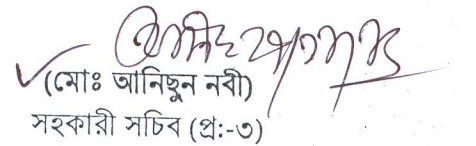 (মোঃ আনিছুন নবী)
সহকারী সচিব (প্র:-৩)